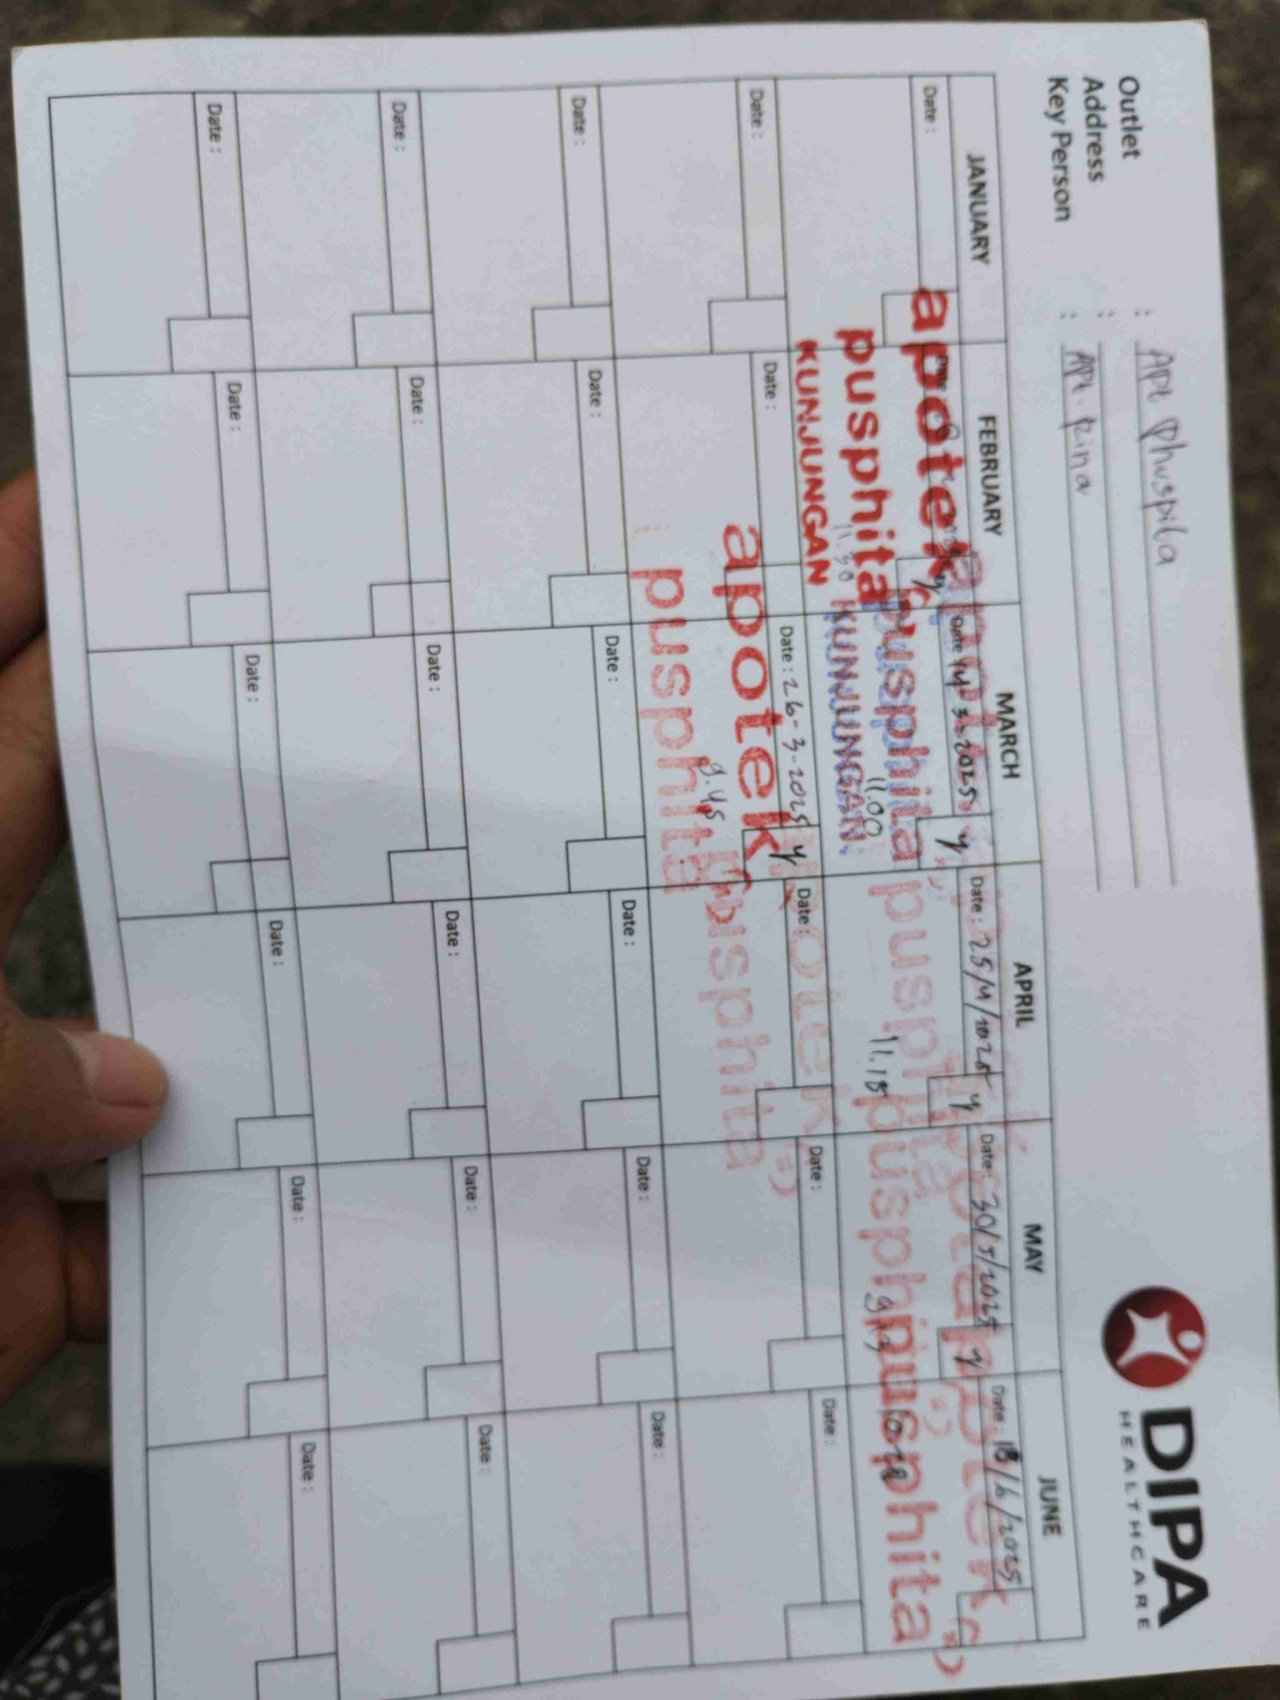 DIPA
HEALTHCARE
Outlet : Apt Phuspita
Address :
Key Person : Apt. Rina
JANUARY FEBRUARY MARCH APRIL MAY JUNE
Date : Date 14-3-2025 y Date : 25/4/2025 y Date : 30/5/2025 y Date : 18/6/2025
apotek
pusphita 11.30 pusphita 11.00 pusphita 11.15 pusphita pusphita
KUNJUNGAN KUNJUNGAN
Date : Date : Date : 26-3-2025 y Date : Date : Date :
apotek
pusphita 9.45 pusphita
Date : Date : Date : Date : Date : Date :
Date : Date : Date : Date : Date : Date :
Date : Date : Date : Date : Date : Date :